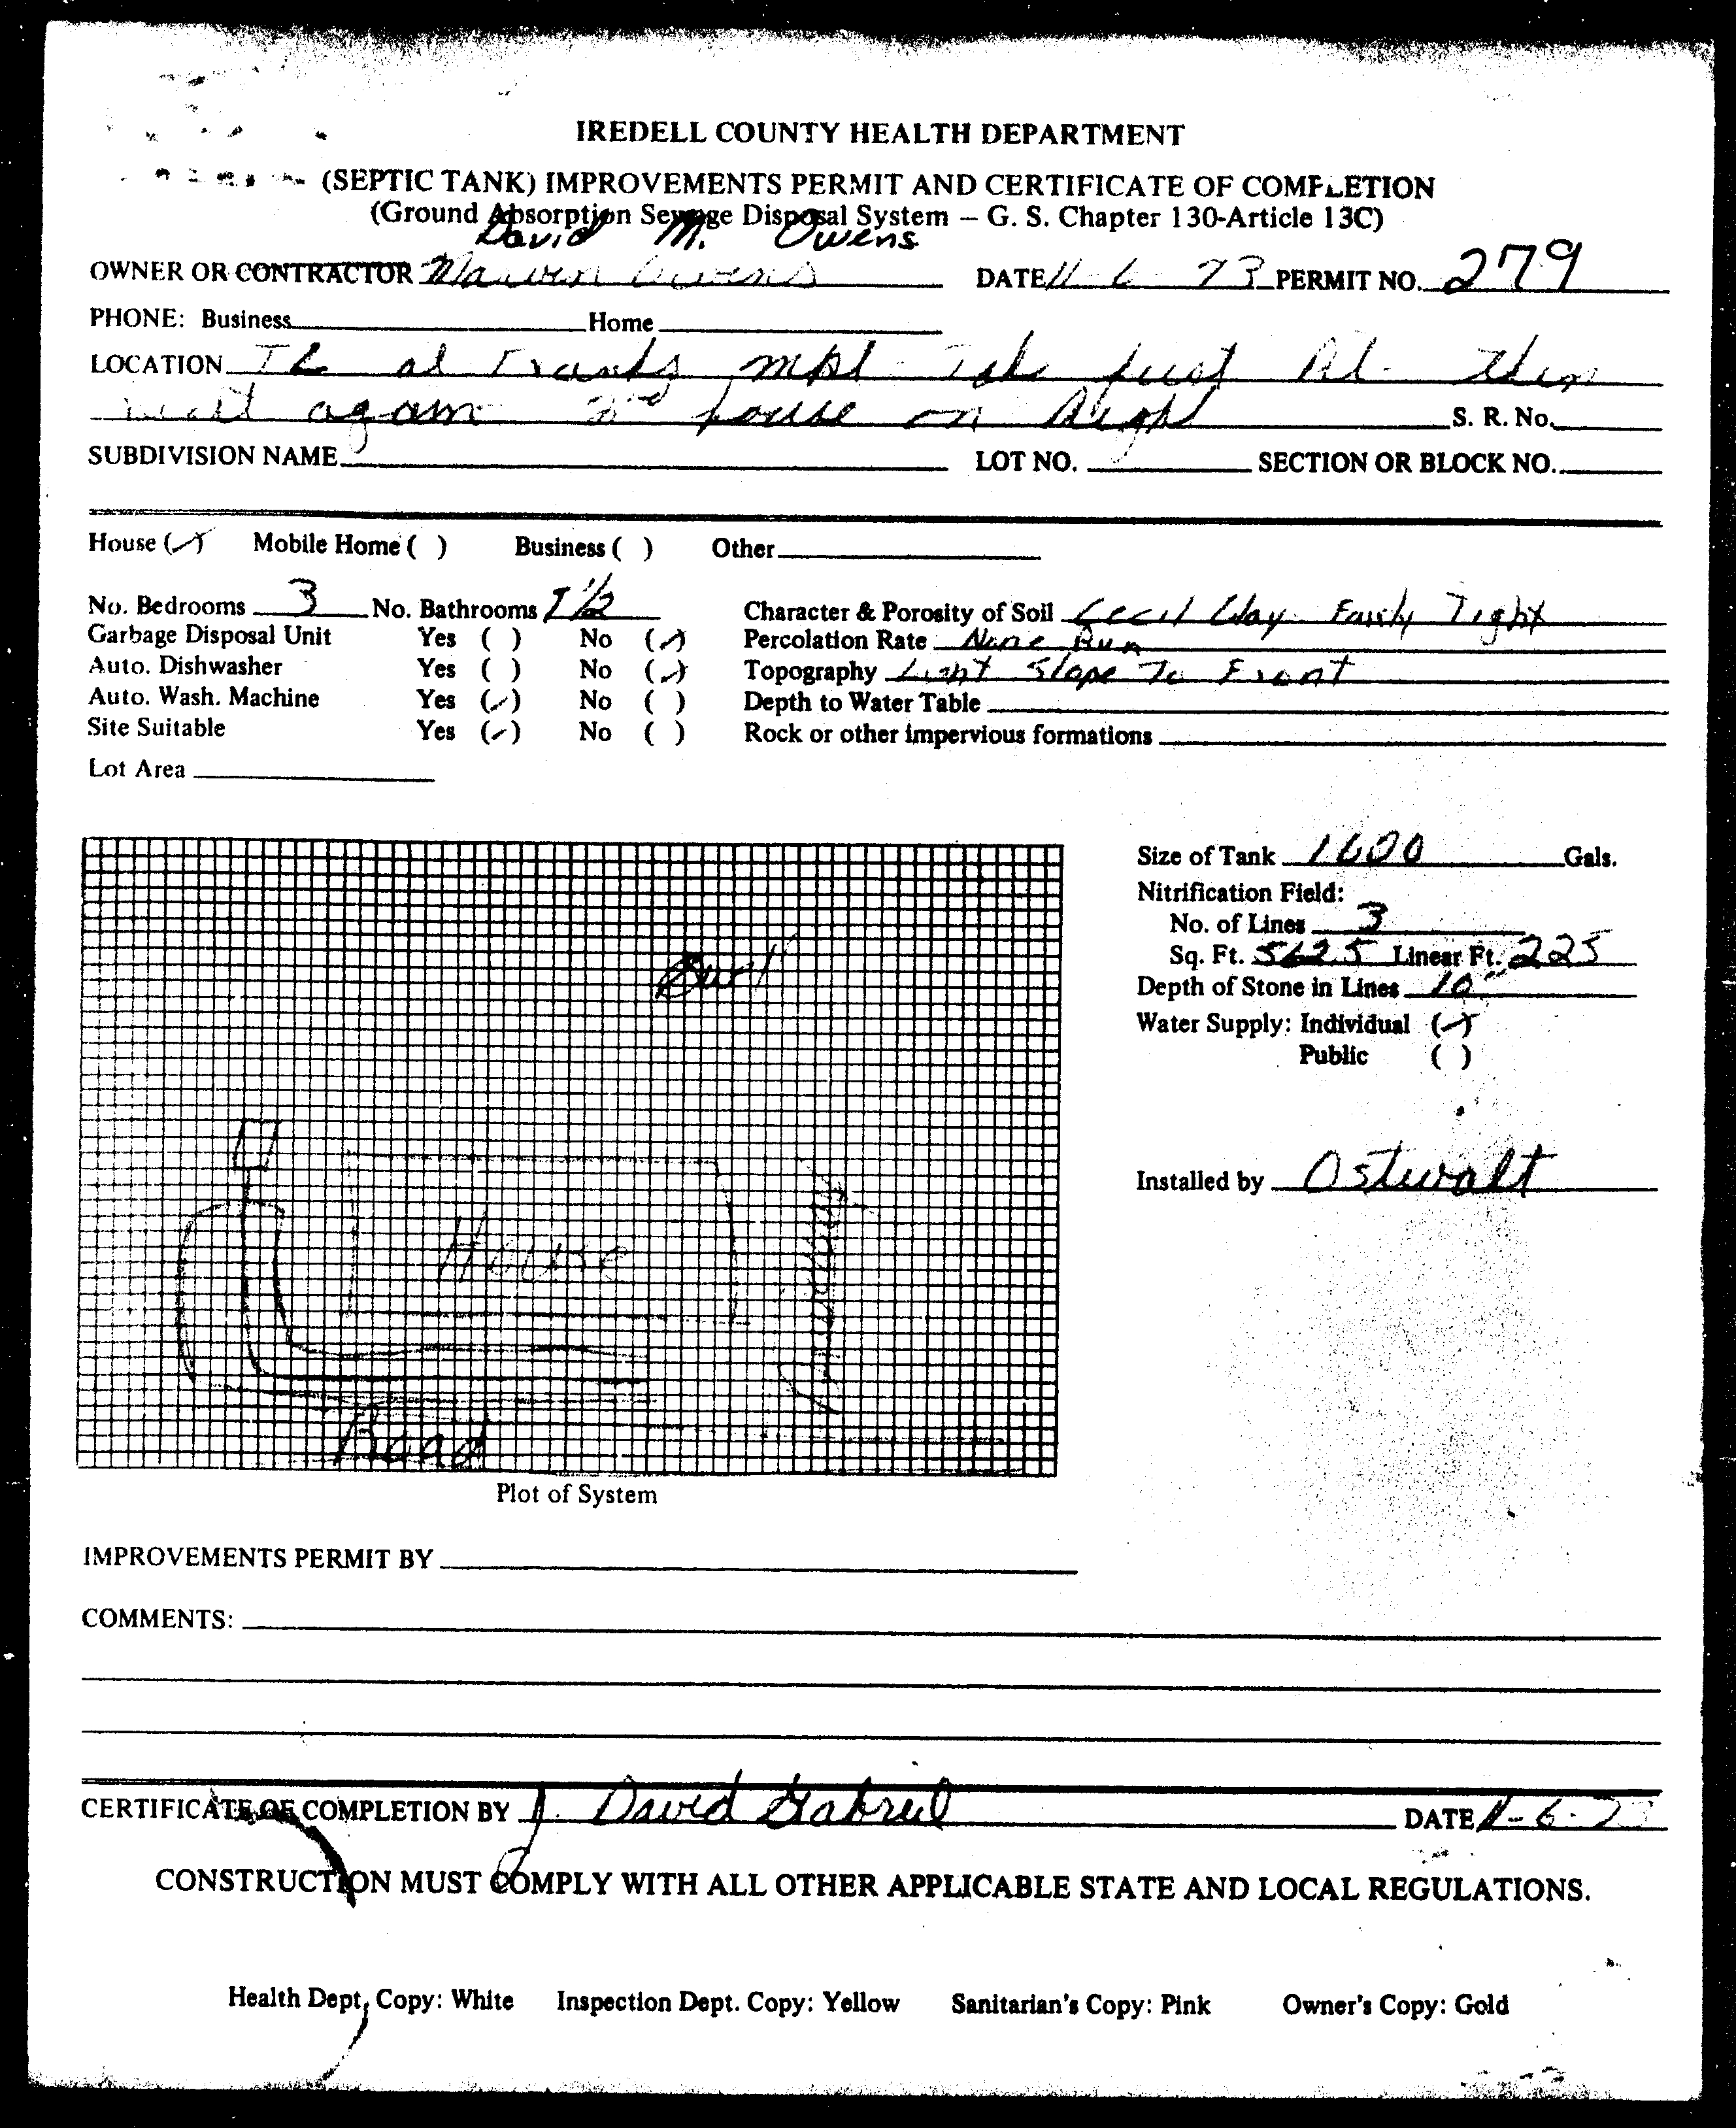 IREDELL COUNTY HEALTH DEPARTMENT
(SEPTIC TANK) IMPROVEMENTS PERMIT AND CERTIFICATE OF COMPLETION
(Ground Absorption Sewage Disposal System – G. S. Chapter 130-Article 13C)
David M. Owens
OWNER OR CONTRACTOR Marvin Owens DATE 11-6-73 PERMIT NO. 279
PHONE: Business Home
LOCATION TL at mkt Take first Rd. then
again 2nd house on Right S. R. No.
SUBDIVISION NAME LOT NO. SECTION OR BLOCK NO.
House (✓) Mobile Home ( ) Business ( ) Other
No. Bedrooms 3 No. Bathrooms 1 1/2 Character & Porosity of Soil Cecil Clay Fairly Tight
Garbage Disposal Unit Yes ( ) No (✓) Percolation Rate None Run
Auto. Dishwasher Yes ( ) No (✓) Topography Light Slope To Front
Auto. Wash. Machine Yes (✓) No ( ) Depth to Water Table
Site Suitable Yes (✓) No ( ) Rock or other impervious formations
Lot Area
Size of Tank 1000 Gals.
Nitrification Field:
No. of Lines 3
Sq. Ft. 562.5 Linear Ft. 225
Depth of Stone in Lines 10"
Water Supply: Individual (✓)
Public ( )
Installed by Ostwalt
House
Road
Plot of System
IMPROVEMENTS PERMIT BY
COMMENTS:
CERTIFICATE OF COMPLETION BY J. David Gabriel DATE 11-6-73
CONSTRUCTION MUST COMPLY WITH ALL OTHER APPLICABLE STATE AND LOCAL REGULATIONS.
Health Dept. Copy: White Inspection Dept. Copy: Yellow Sanitarian's Copy: Pink Owner's Copy: Gold